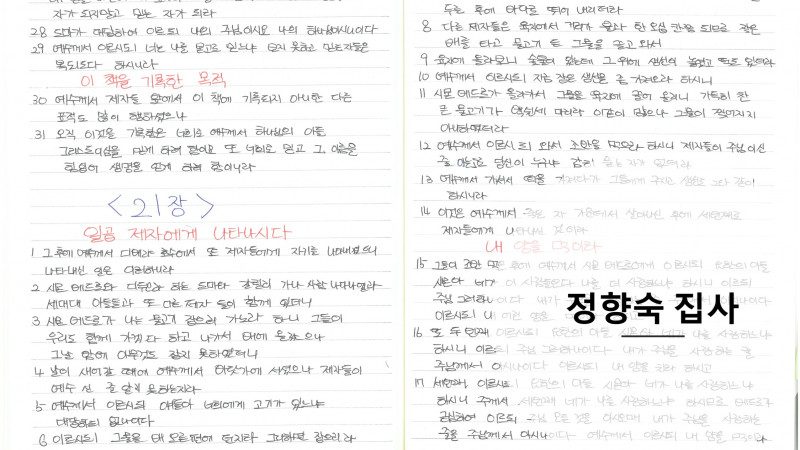 자가 되지말고 믿는 자가 되라
28 도마가 대답하여 이르되 나의 주님이시오 나의 하나님이시니이다
29 예수께서 이르시되 너는 나를 본고로 믿느냐 보지 못하고 믿는자들은
복되도다 하시니라
이 책을 기록한 목적
30 예수께서 제자들 앞에서 이 책에 기록되지 아니한 다른
표적도 많이 행하셨으나
31 오직 이것을 기록함은 너희로 예수께서 하나님의 아들
그리스도이심을 믿게 하려 함이요 또 너희로 믿고 그 이름을
힘입어 생명을 얻게 하려 함이니라
<21장>
일곱 제자에게 나타나시다
1 그 후에 예수께서 디베랴 호수에서 또 제자들에게 자기를 나타내셨으니
나타내신 일은 이러하니라
2 시몬 베드로와 디두모라 하는 도마와 갈릴리 가나 사람 나다나엘과
세베대의 아들들과 또 다른 제자 둘이 함께 있더니
3 시몬 베드로가 나는 물고기 잡으러 가노라 하니 그들이
우리도 함께 가겠다 하고 나가서 배에 올랐으나
그날 밤에 아무것도 잡지 못하였더니
4 날이 새어갈 때에 예수께서 바닷가에 서셨으나 제자들이
예수신 줄 알지 못하는지라
5 예수께서 이르시되 얘들아 너희에게 고기가 있느냐
대답하되 없나이다
6 이르시되 그물을 배 오른편에 던지라 그리하면 잡으리라
두른 후에 바다로 뛰어 내리더라
8 다른 제자들은 육지에서 거리가 불과 한 오십 칸쯤 되므로 작은
배를 타고 물고기 든 그물을 끌고 와서
9 육지에 올라보니 숯불이 있는데 그 위에 생선이 놓였고 떡도 있더라
10 예수께서 이르시되 지금 잡은 생선을 좀 가져오라 하시니
11 시몬 베드로가 올라가서 그물을 육지에 끌어 올리니 가득히 찬
큰 물고기가 백쉰세 마리라 이같이 많으나 그물이 찢어지지
아니하였더라
12 예수께서 이르시되 와서 조반을 먹으라 하시니 제자들이 주님이신
줄 아는고로 당신이 누구냐 감히 묻는 자가 없더라
13 예수께서 가셔서 떡을 가져다가 그들에게 주시고 생선도 그와 같이
하시니라
14 이것은 예수께서 죽은 자 가운데서 살아나신 후에 세번째로
제자들에게 나타나신 것이라
내 양을 먹이라
15 그들이 조반 먹은 후에 예수께서 시몬 베드로에게 이르시되 요한의 아들
시몬아 네가 이 사람들보다 나를 더 사랑하느냐 하시니 이르되
주님 그러하나이다 내가
이르시되 내 어린 양을
정향숙 집사
16 또 두번째 이르시되 요한의 아들 시몬아 네가 나를 사랑하느냐
하시니 이르되 주님 그러하나이다 내가 주님을 사랑하는 줄
주님께서 아시나이다 이르시되 내 양을 치라 하시고
17 세번째 이르시되 요한의 아들 시몬아 네가 나를 사랑하느냐
하시니 주께서 세번째 네가 나를 사랑하느냐 하시므로 베드로가
근심하여 이르되 주님 모든 것을 아시오매 내가 주님을 사랑하는
줄을 주님께서 아시나이다 예수께서 이르시되 내 양을 먹이라